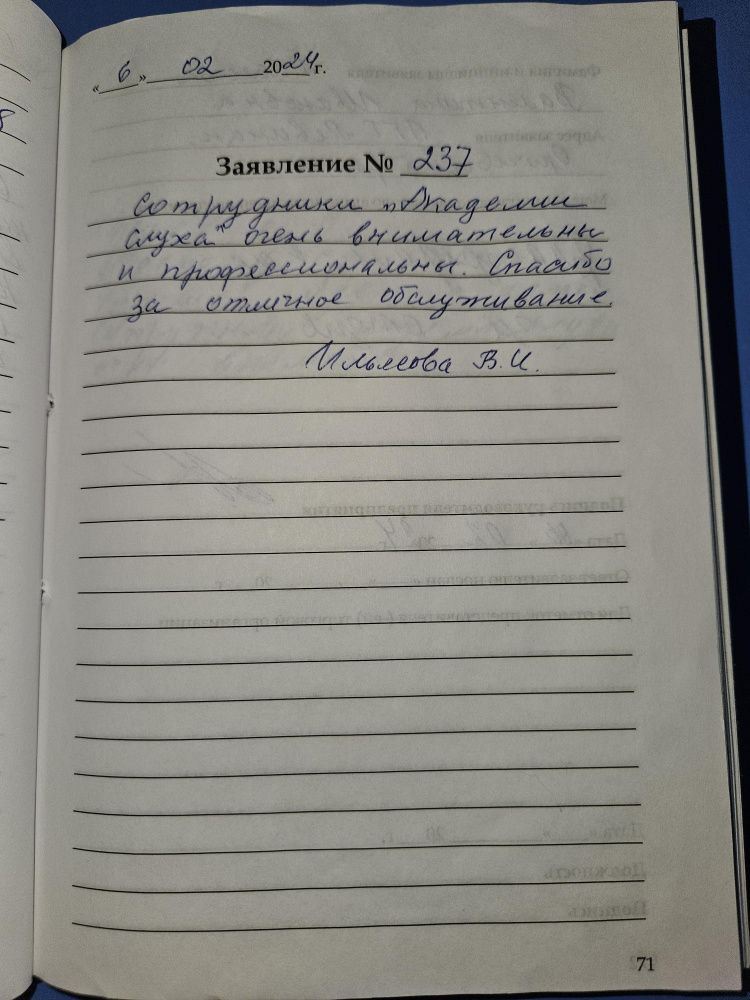 « 6 » 02 2024 г.
Заявление № 237
Сотрудники „Академии
слуха" очень внимательны
и профессиональны. Спасибо
за отличное обслуживание.
Ильясова В.И.
71